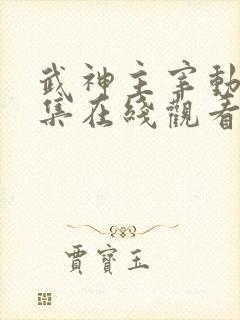 武神主宰動
集在綫觀看
賈寶玉